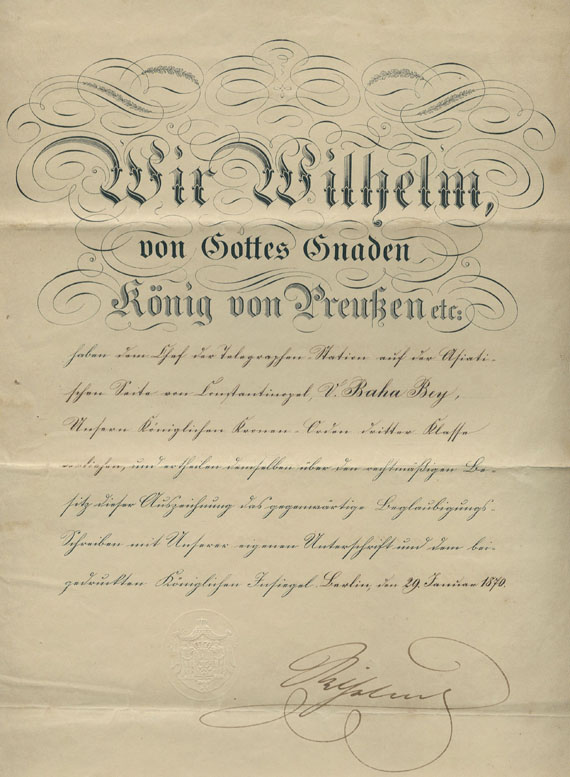 Wir Wilhelm,
von Gottes Gnaden
König von Preußen etc:
haben dem Chef der Telegraphen-Station auf der Asiati-
schen Seite von Constantinopel, V. Baha Bey,
Unsern Königlichen Kronen-Orden dritter Klasse
verliehen, und ertheilen demselben über den rechtmäßigen Be-
sitz dieser Auszeichnung das gegenwärtige Beglaubigungs-
Schreiben mit Unserer eigenen Unterschrift und dem bei-
gedruckten Königlichen Insiegel. Berlin, den 29. Januar 1870.
Wilhelm